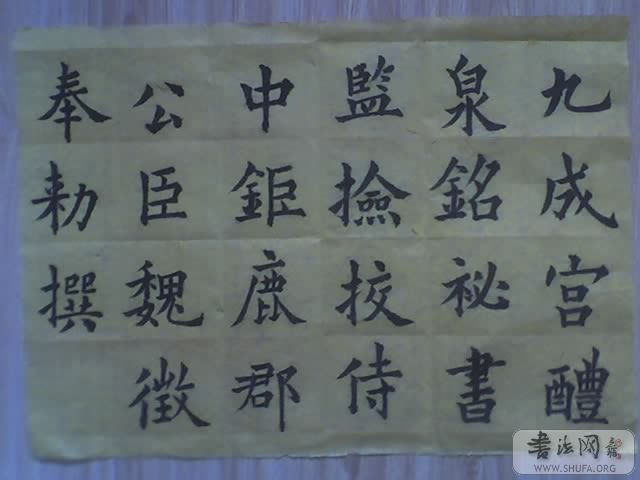 九成宫醴
泉銘祕書
監撿挍侍
中鉅鹿郡
公臣魏徵
奉勅撰
书法网
WWW.SHUFA.ORG